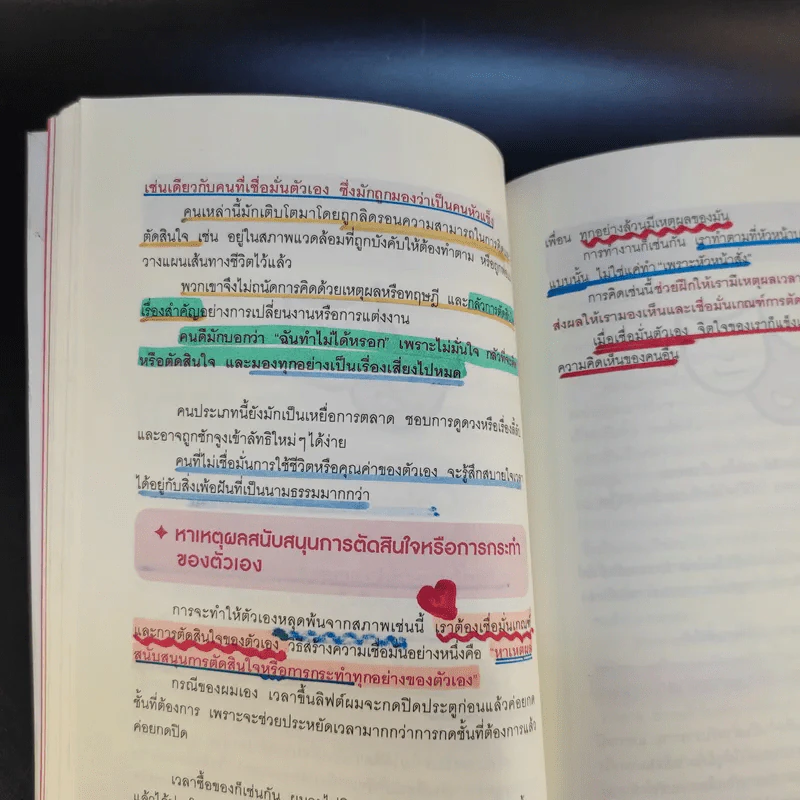 เช่นเดียวกับคนที่เชื่อมั่นตัวเอง ซึ่งมักถูกมองว่าเป็นคนหัวแข็ง
คนเหล่านี้มักเติบโตมาโดยถูกลิดรอนความสามารถในการ
ตัดสินใจ เช่น อยู่ในสภาพแวดล้อมที่ถูกบังคับให้ต้องทำตาม หรือถูก
วางแผนเส้นทางชีวิตไว้แล้ว
พวกเขาจึงไม่ถนัดการคิดด้วยเหตุผลหรือทฤษฎี และกลัวการ
เรื่องสำคัญอย่างการเปลี่ยนงานหรือการแต่งงาน
คนดีมักบอกว่า "ฉันทำไม่ได้หรอก" เพราะไม่มั่นใจ กลัวที่จะ
หรือตัดสินใจ และมองทุกอย่างเป็นเรื่องเสี่ยงไปหมด
คนประเภทนี้ยังมักเป็นเหยื่อการตลาด ชอบการดูดวงหรือเรื่อง
และอาจถูกชักจูงเข้าลัทธิใหม่ๆ ได้ง่าย
คนที่ไม่เชื่อมั่นการใช้ชีวิตหรือคุณค่าของตัวเอง จะรู้สึกสบายใจ
ได้อยู่กับสิ่งเพ้อฝันที่เป็นนามธรรมมากกว่า
หาเหตุผลสนับสนุนการตัดสินใจหรือการกระทำ
ของตัวเอง
การจะทำให้ตัวเองหลุดพ้นจากสภาพเช่นนี้ เราต้องเชื่อมั่นเกณฑ์
และการตัดสินใจของตัวเอง วิธีสร้างความเชื่อมั่นอย่างหนึ่งคือ "หาเหตุผล
สนับสนุนการตัดสินใจหรือการกระทำทุกอย่างของตัวเอง"
กรณีของผมเอง เวลาขึ้นลิฟต์ผมจะกดปิดประตูก่อนแล้วค่อยกด
ชั้นที่ต้องการ เพราะจะช่วยประหยัดเวลามากกว่าการกดชั้นที่ต้องการแล้ว
ค่อยกดปิด
เวลาซื้อของก็เช่นกัน
เพื่อน ทุกอย่างล้วนมีเหตุผลของมัน
การทำงานก็เช่นกัน เราทำตามที่หัวหน้า
แบบนั้น ไม่ใช่แค่ทำ "เพราะหัวหน้าสั่ง"
การคิดเช่นนี้ช่วยฝึกให้เรามีเหตุผลเวลา
ส่งผลให้เรามองเห็นและเชื่อมั่นเกณฑ์การตัด
เมื่อเชื่อมั่นตัวเอง จิตใจของเราก็แข็ง
ความคิดเห็นของคนอื่น